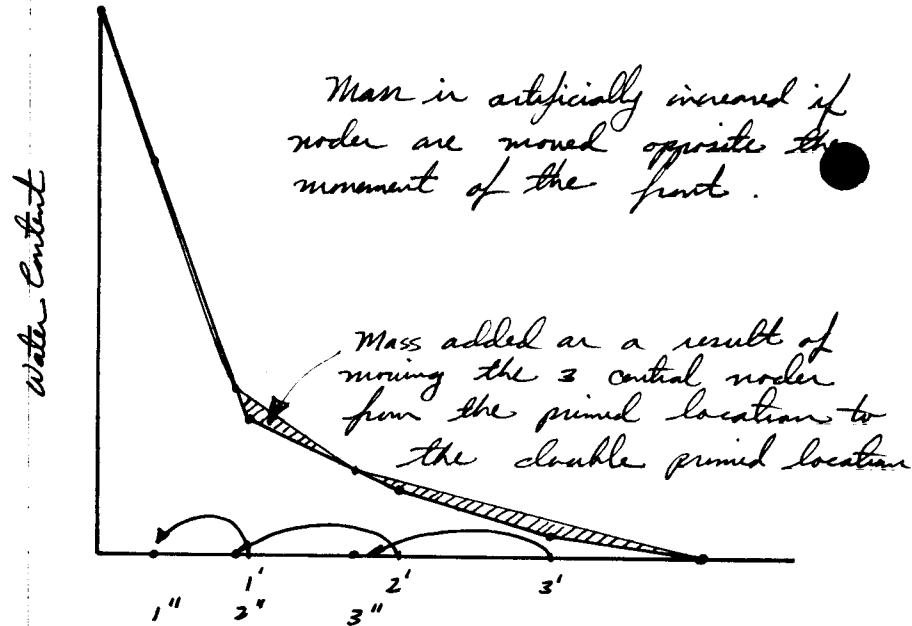 Mass is artificially increased if
nodes are moved opposite the
movement of the front.
Water Content
Mass added as a result of
moving the 3 central nodes
from the primed location to
the double primed location
1' 2' 3'
1" 2" 3"